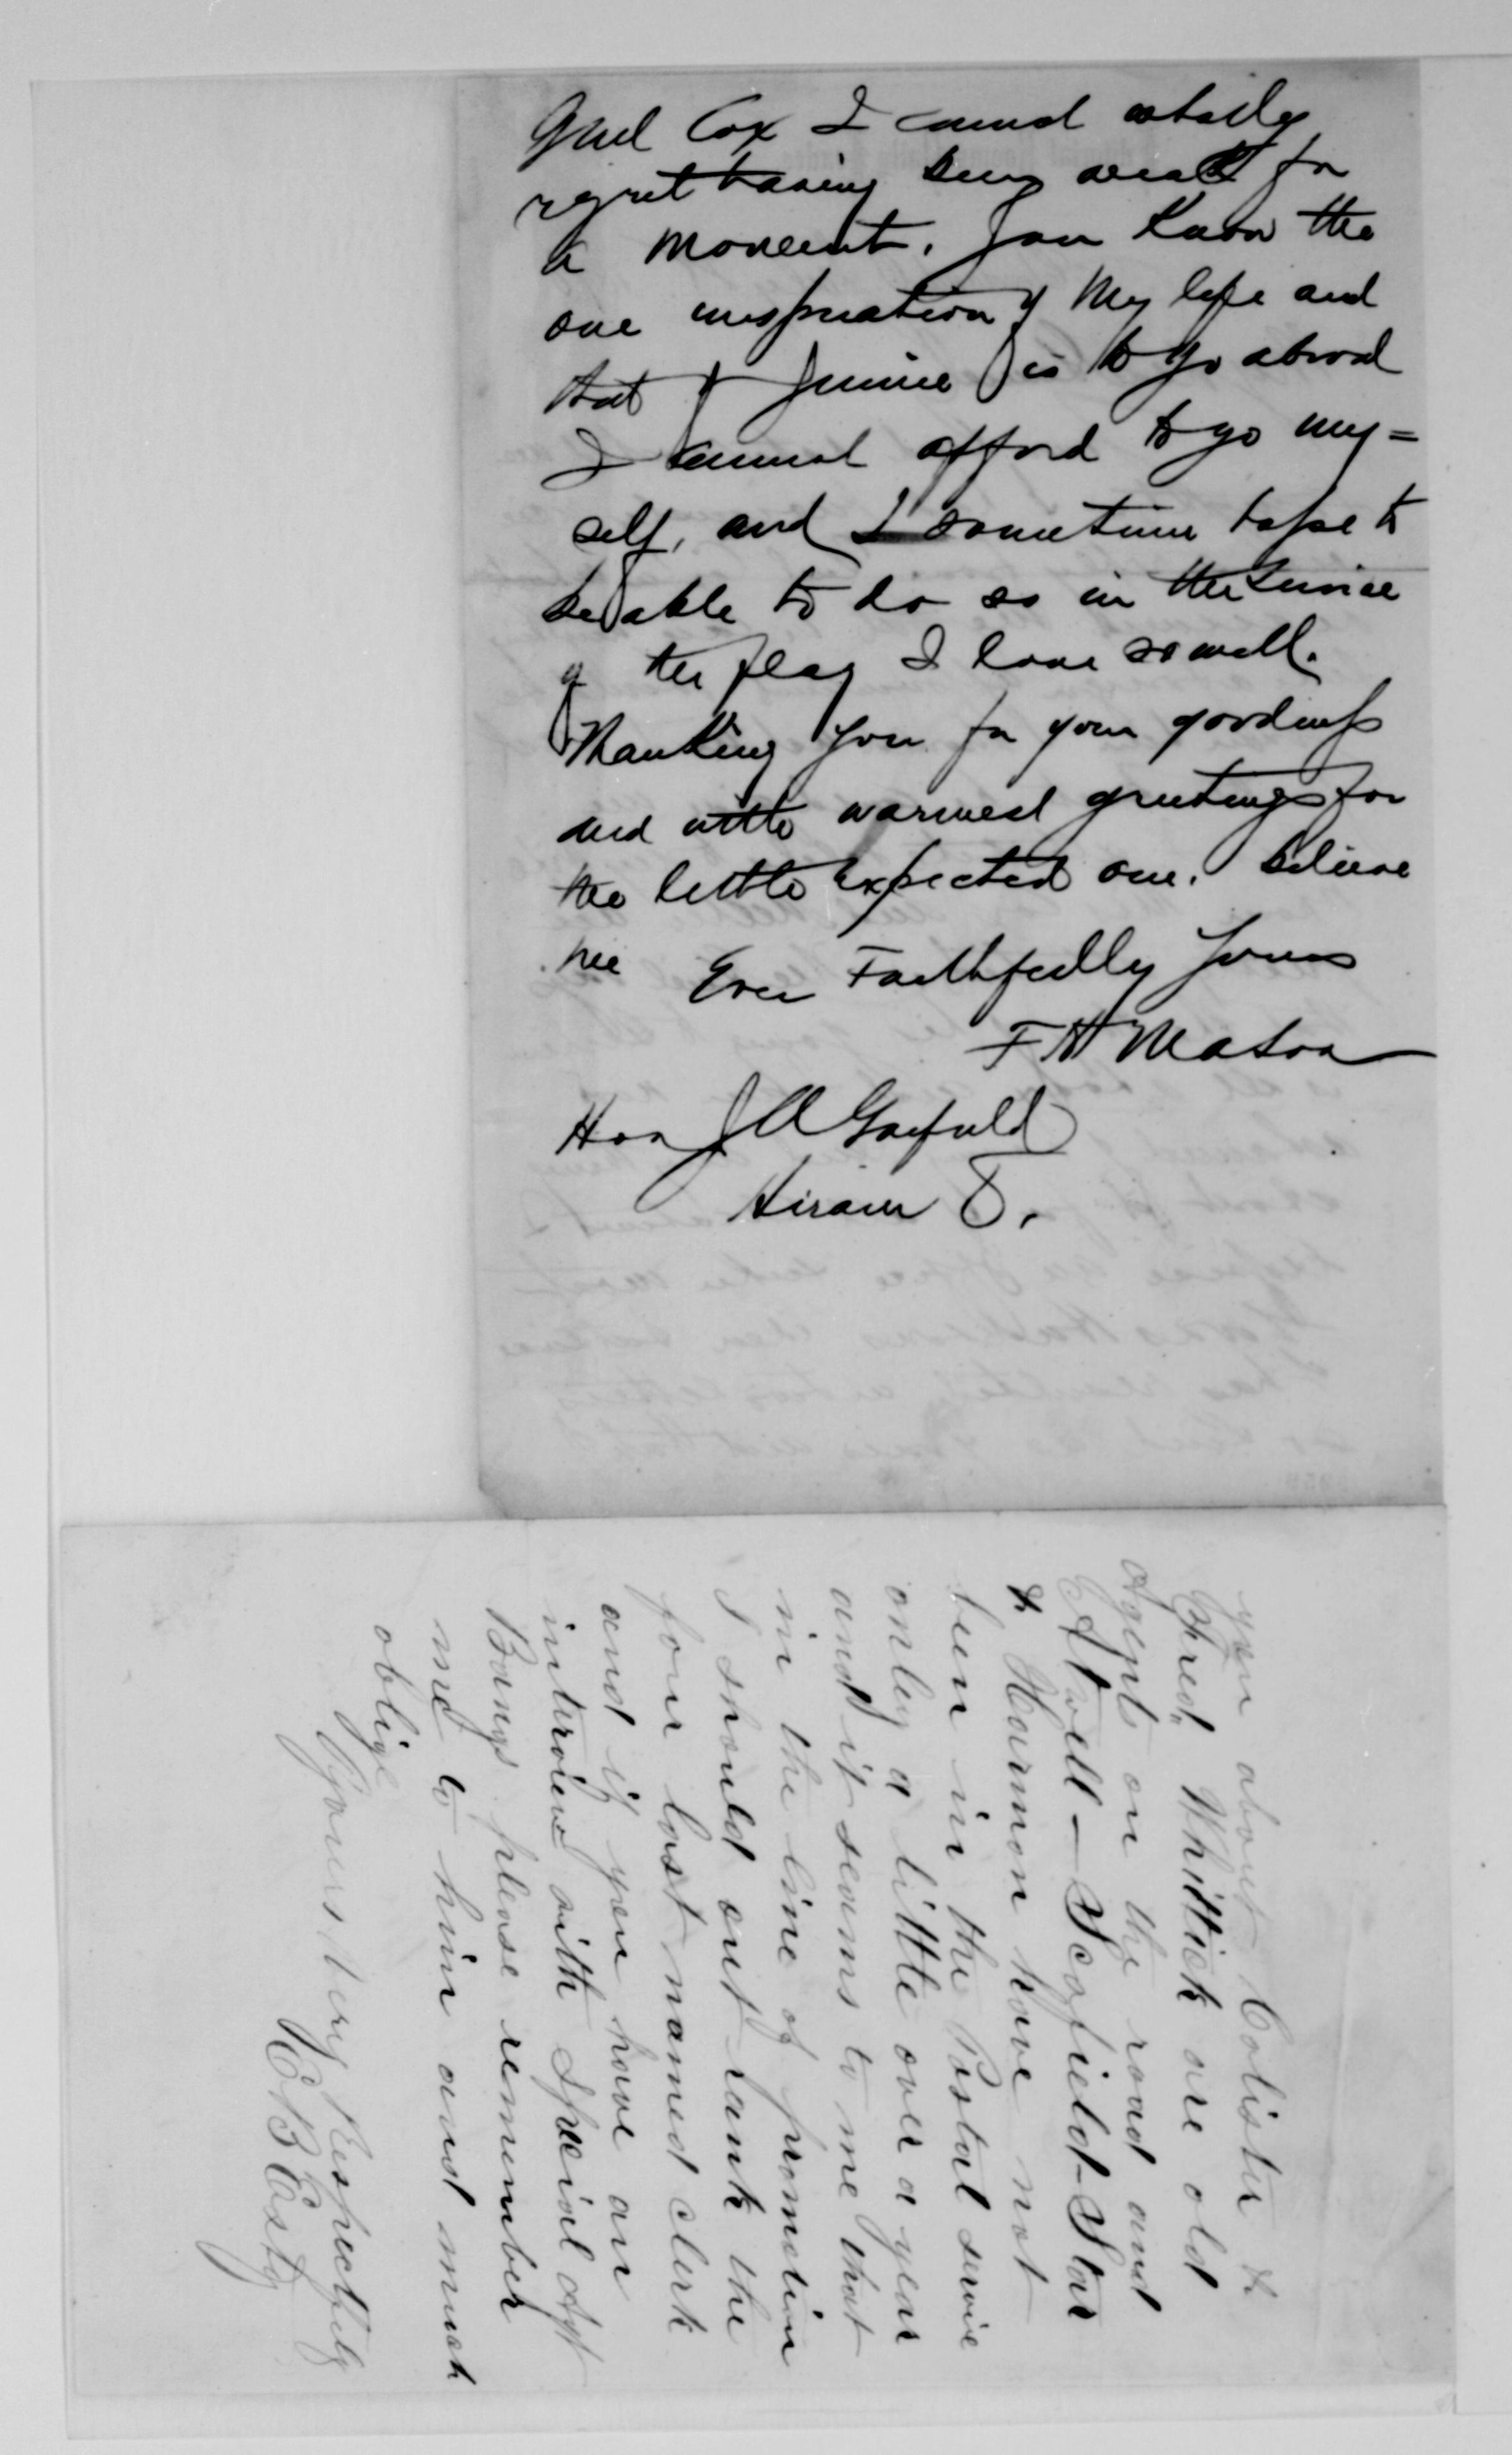 Genl Cox I cannot wholly
regret having been weak for
a moment. You know the
one inspiration of my life and
that of Jennie is to go abroad
I cannot afford to go my=
self, and I sometime hope to
be able to do so in the service
of the flag I love so well.
Thanking you for your goodness
and with warmest greetings for
the little expected one. believe
me Ever Faithfully Yours
F H Mason
Hon J A Garfield
Hiram O.
you about Colister &
Fred. Whittick are old
Agent on the road and
Atwell – Scofield – Star
& Harmon have not
been in the Postal servie
onley a little over a year
and it seams to me that
in the line of promotion
I should out rank the
four last named clerk
and if you have an
interview with Special Agt
Bangs please remember
me to him and much
oblige
Yours Very Respectfuly
E B Esty